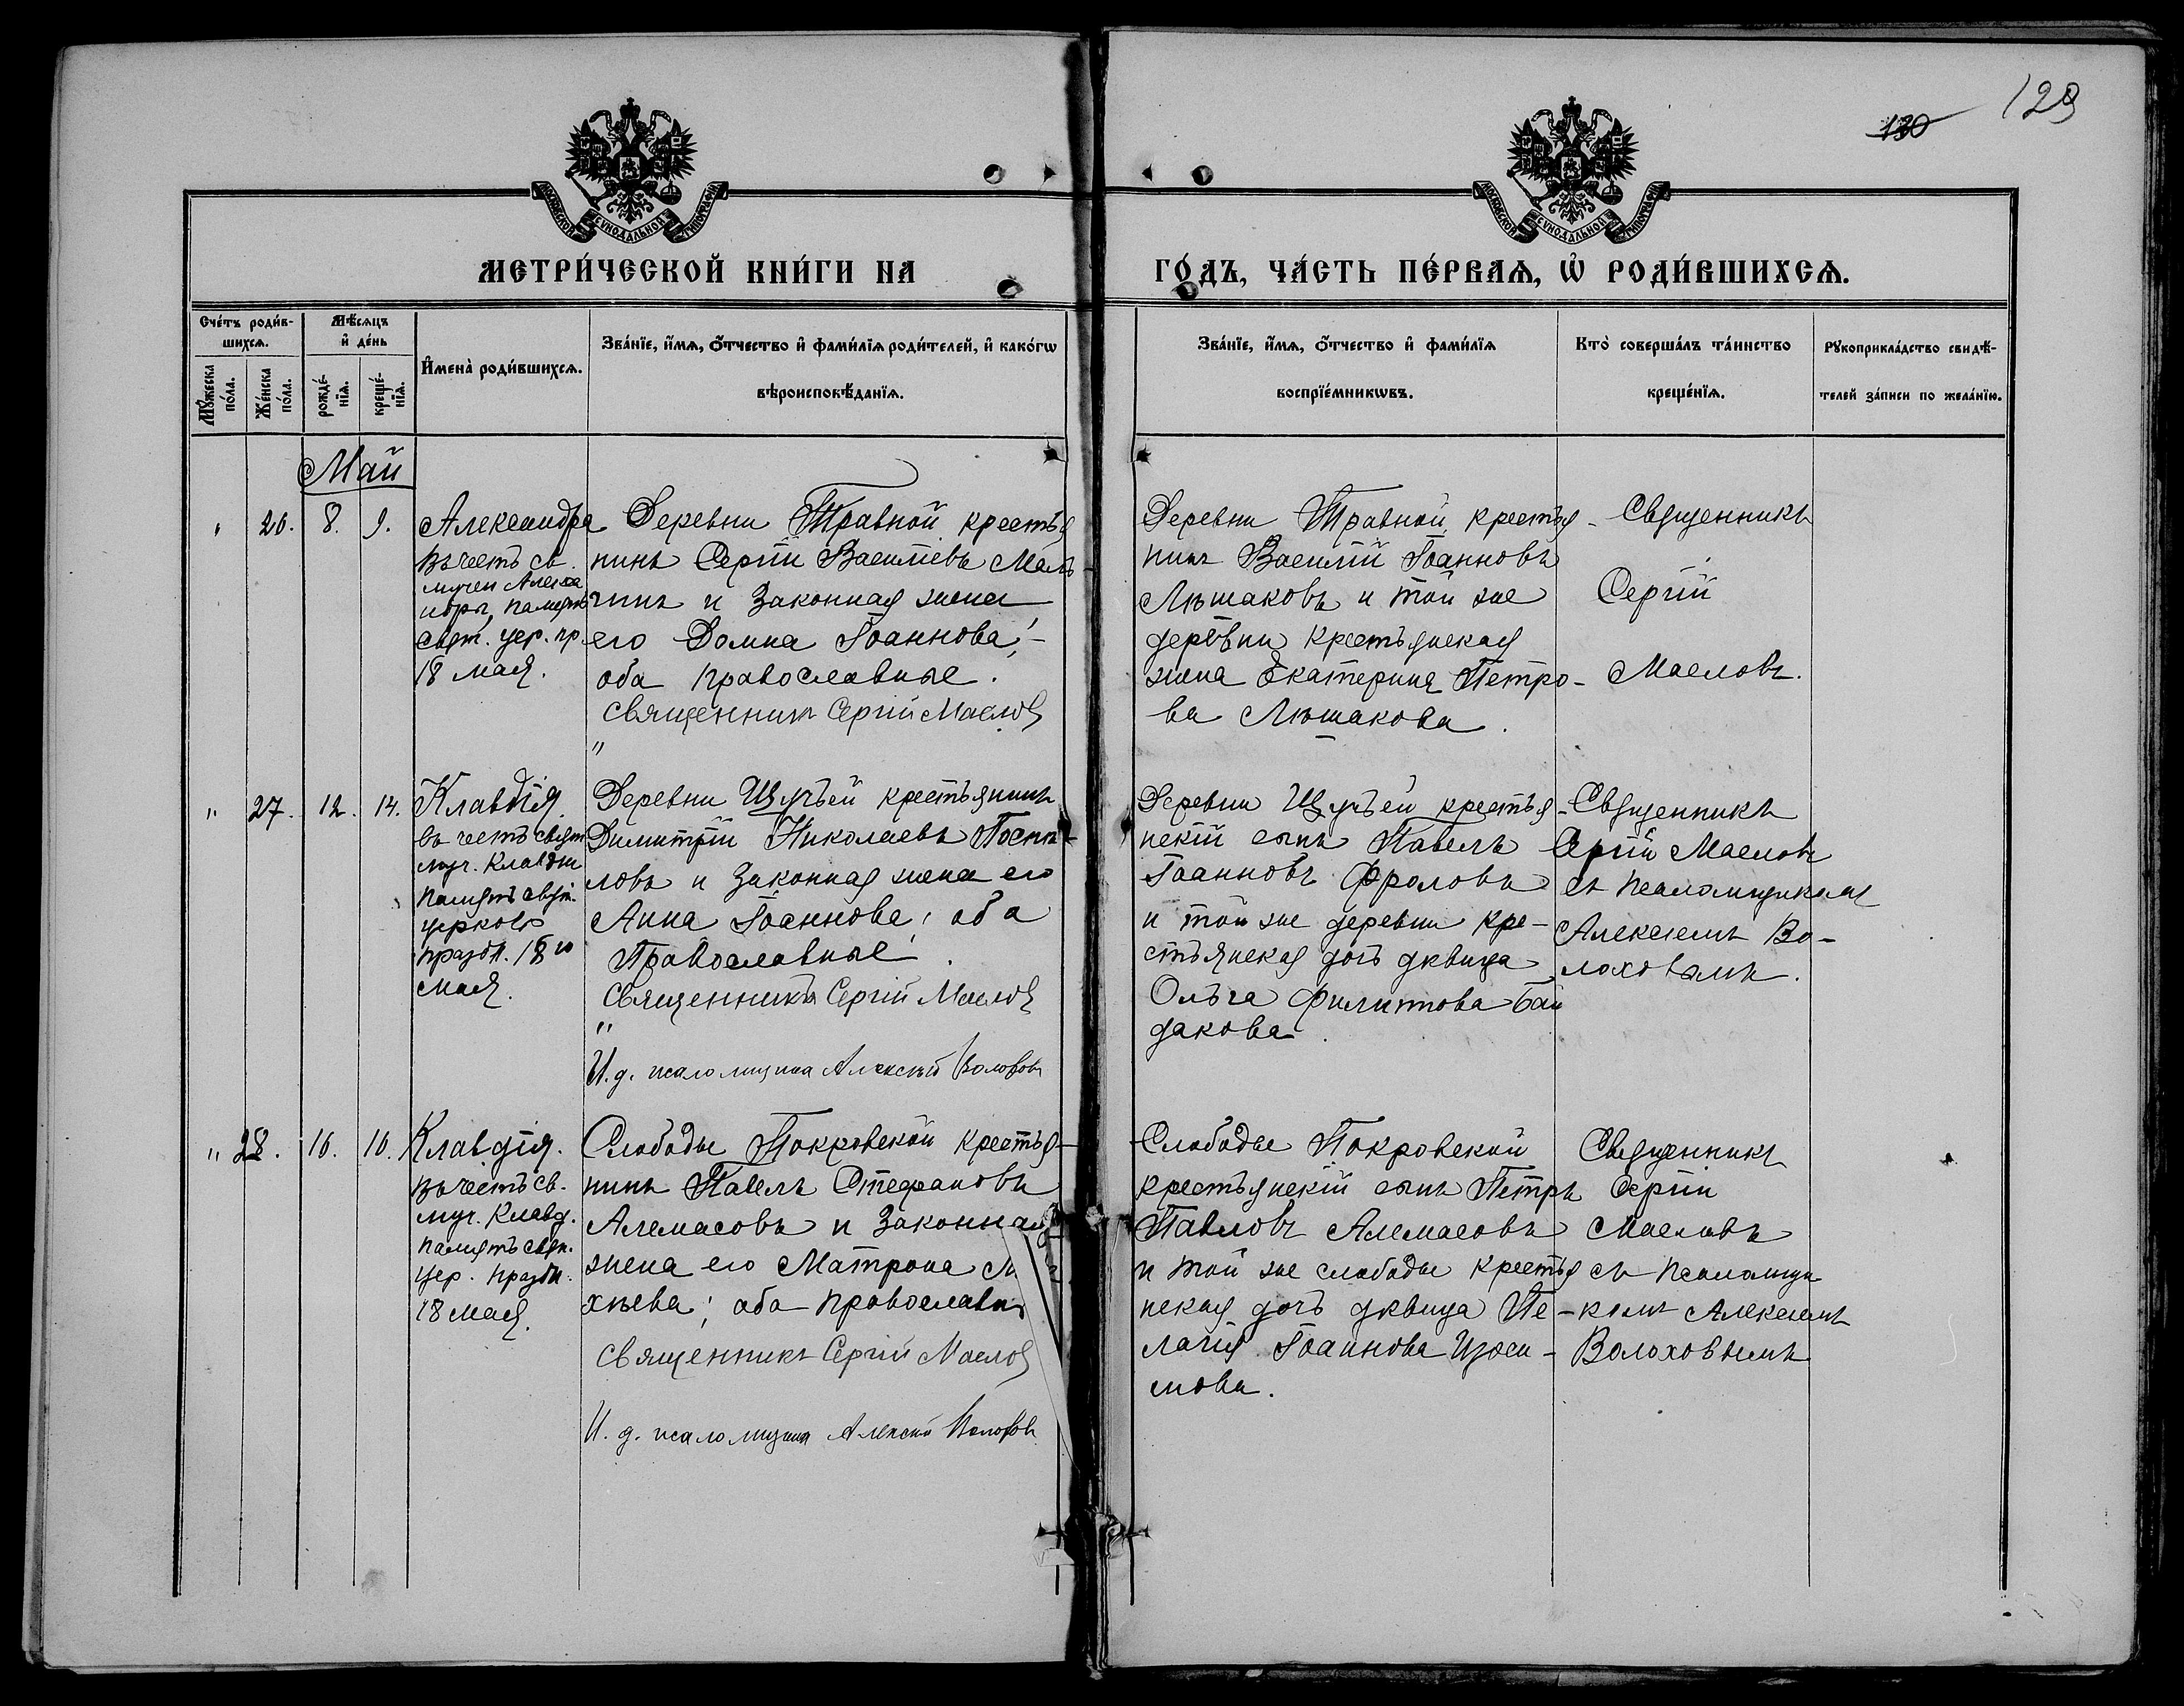 129
130
МОСКОВСКОЙ СѴНОДАЛЬНОЙ ТИПОГРАФІИ
МОСКОВСКОЙ СѴНОДАЛЬНОЙ ТИПОГРАФІИ
МЕТРИ́ЧЕСКОЙ КНИ́ГИ НА
ГО́ДЪ, ЧА́СТЬ ПЕ́РВАЯ, Ѡ҆ РОДИ́ВШИХСЯ.
Сче́тъ роди́в-
шихся.
Мꙋ́жеска по́ла.
Же́нска по́ла.
Мѣ́сяцъ
и҆ де́нь
рожде́-
нїя.
креще́-
нїя.
И҆мена̀ роди́вшихся.
Зва́нїе, и҆́мя, ѻ҆́тчество и҆ фами́лїя роди́телей, и҆ како́гѡ
вѣроисповѣ́данїя.
Зва́нїе, и҆́мя, ѻ҆́тчество и҆ фами́лїя
воспрїе́мникѡвъ.
Кто̀ соверша́лъ та́инство
креще́нїя.
Рꙋкоприкла́дство свидѣ́-
телей за́писи по жела́нїю.
Май
" 26. 8. 9.
Александра
Въ честь св.
мучен Алекса
ндры, память
свят. цер. пр.
18 мая.
Деревни Травной крестья
нинъ Сергій Василіевъ Маль-
гинъ и законная жена
его Домна Іоаннова;
оба православные.
Священникъ Сергій Маслов
Деревни Травной крестья-
нинъ Василій Іоанновъ
Лѣшаковъ и той же
деревни крестьянская
жена Екатерина Петро-
ва Лѣшакова.
Священникъ
Сергій
Масловъ.
" 27. 12. 14.
Клавдія
въ честь свят
муч. Клавдіи
память свят.
церковь
праздн. 18 го
мая.
Деревни Щучьей крестьянинъ
Димитрій Николаевъ Поспѣ-
ловъ и законная жена его
Анна Іоаннова; оба
Православные.
Священникъ Сергій Маслов
И. д. псаломщика Алексѣй Волохов
Деревни Щучьей крестья-
нскій сынъ Павелъ
Іоанновъ Фроловъ
и той же деревни кре-
стьянская дочь дѣвица
Ольга Филиппова Бай
дакова.
Священникъ
Сергій Масловъ
съ псаломщикомъ
Алексѣемъ Во-
лоховымъ.
" 28. 16. 16.
Клавдія.
Въ честь св.
муч. Клавд.
память свят.
цер. праздн.
18 мая.
Слободы Покровской крестья-
нинъ Павелъ Стефановъ
Алемасовъ и законная
жена его Матрона
хѣева; оба православн
Священникъ Сергій Маслов
И. д. псаломщика Алексѣй Волохов
Слободы Покровской
крестьянскій сынъ Петръ
Павловъ Алемасовъ
и той же слободы крестья
нская дочь дѣвица Пе-
лагія Іоаннова Изоси-
мова.
Священникъ
Сергій
Масловъ
съ псаломщи
комъ Алексѣемъ
Волоховымъ